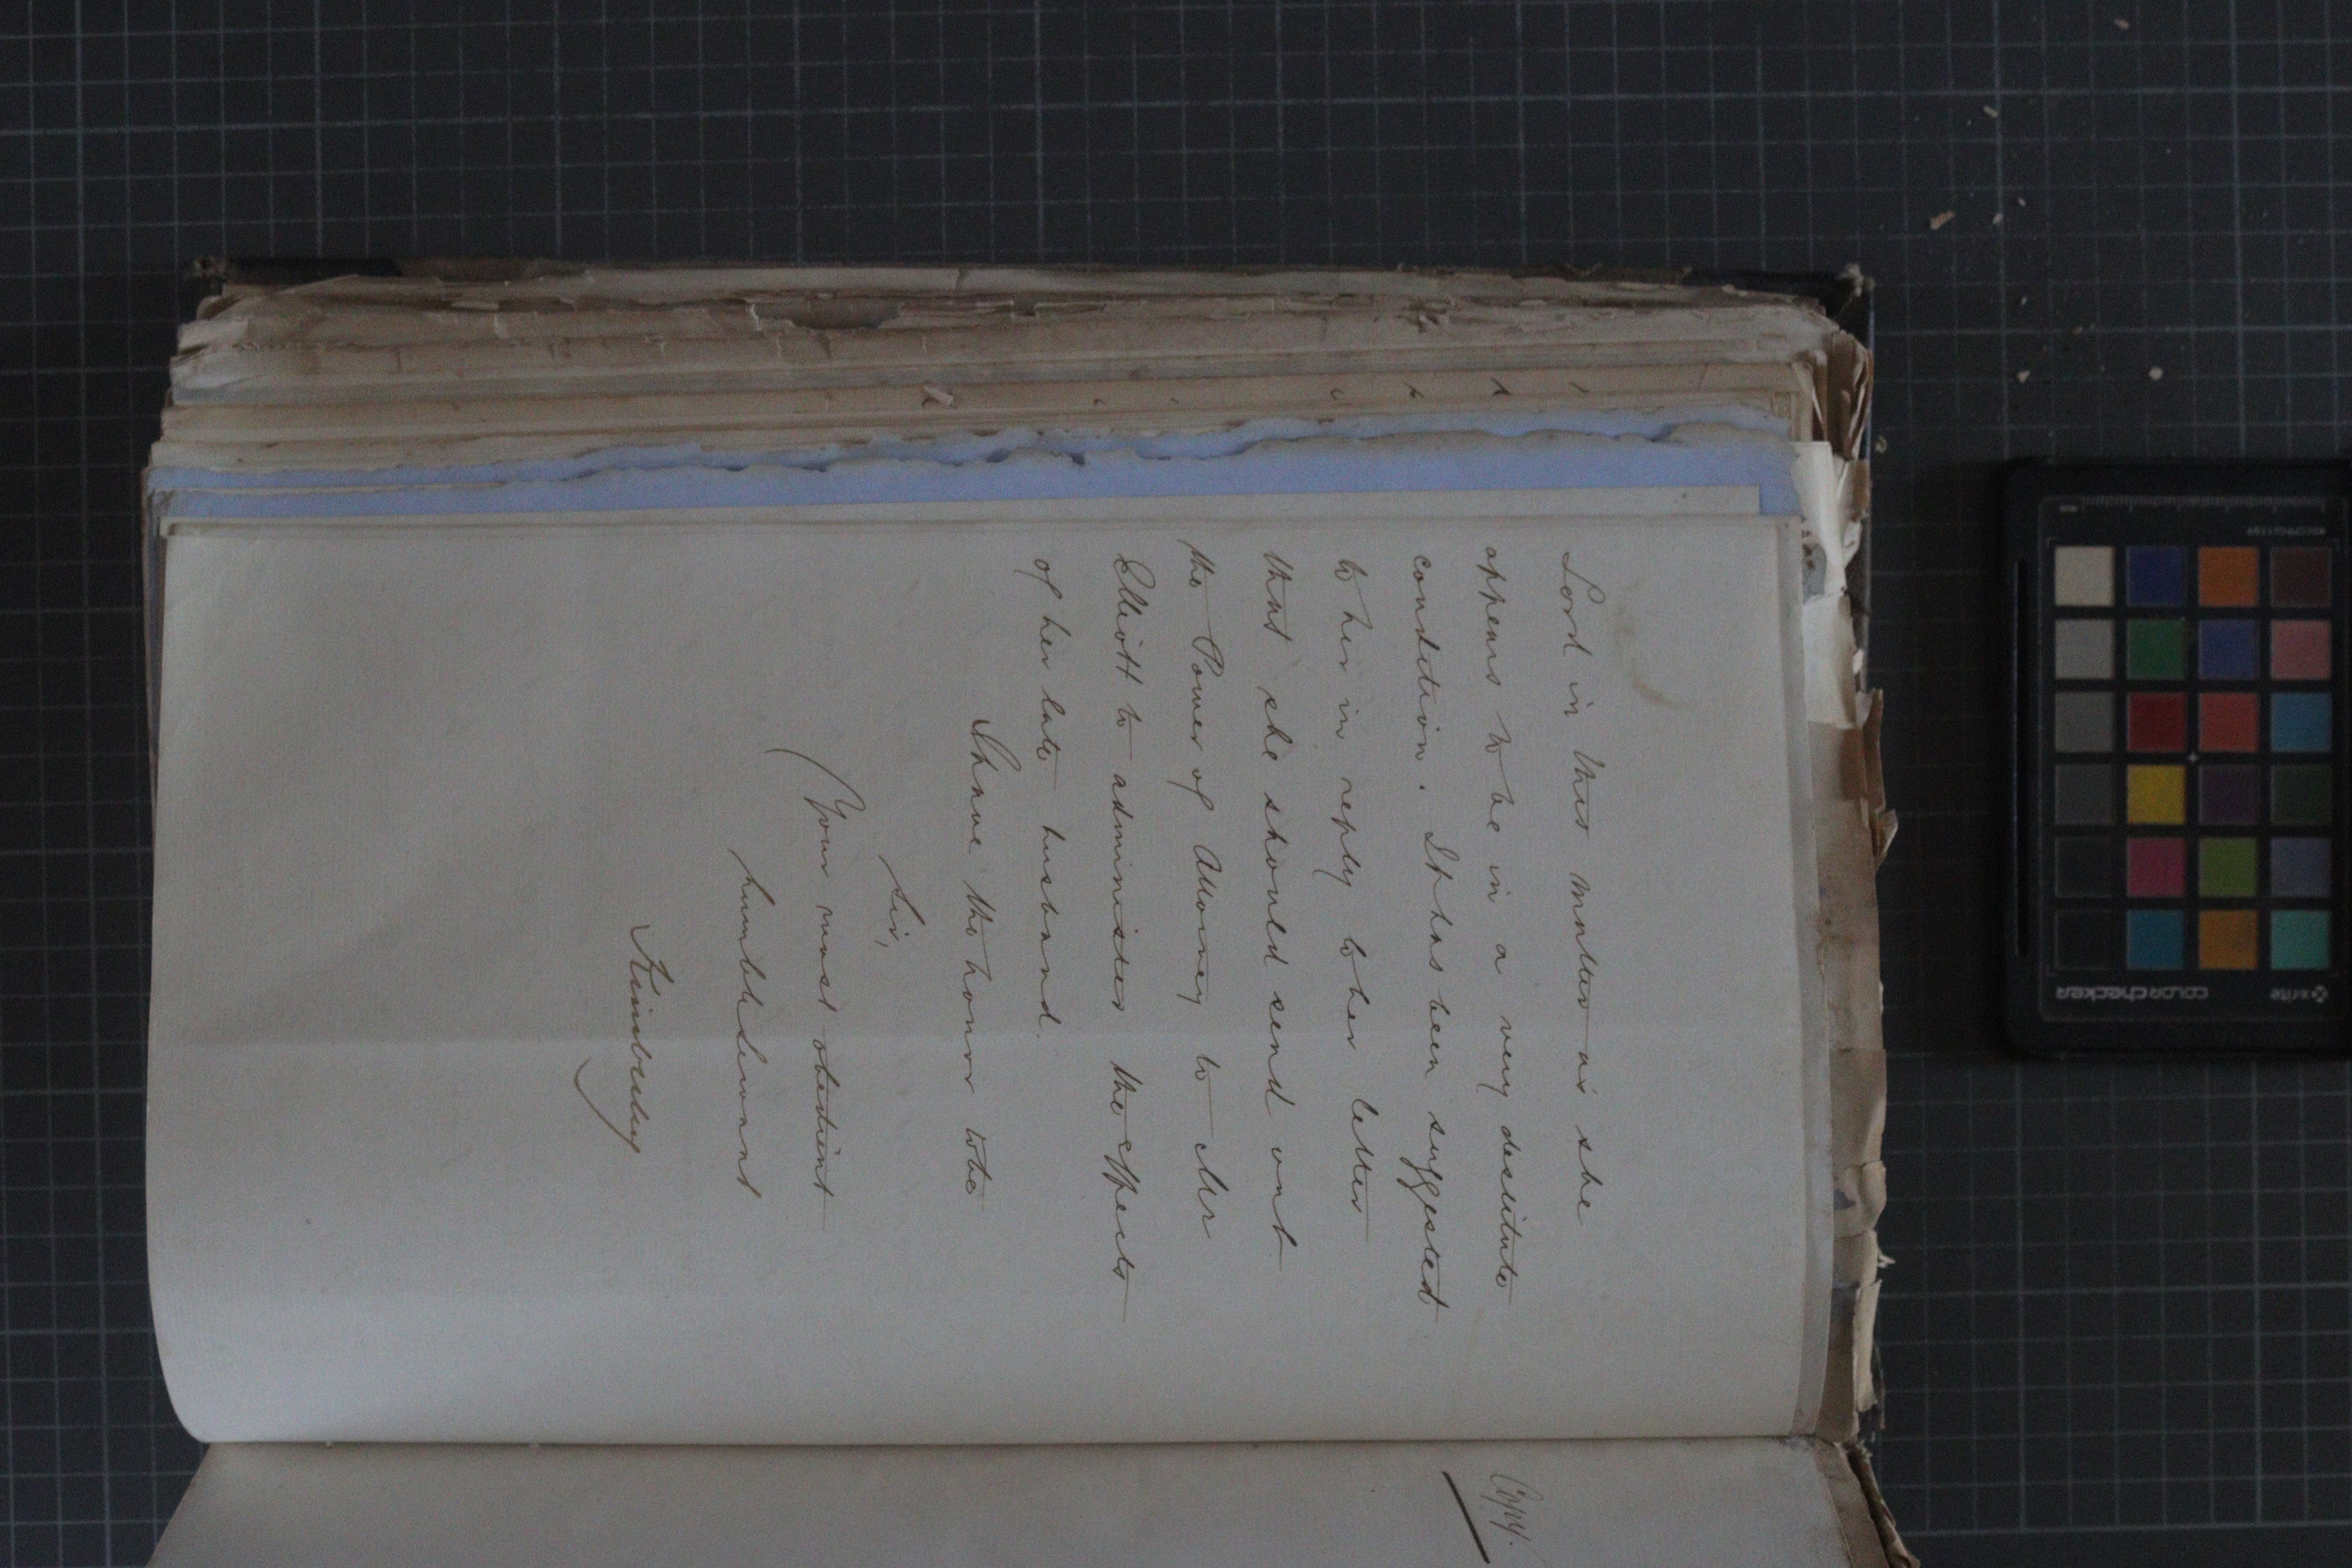 Lord in this matter as she
appears to be in a very destitute
condition. It has been suggested
to her in reply to her letter
that she should send out
the Power of Attorney to Mr
Elliott to administer the effects
of her late husband.
I have the honor to be
Sir,
Your most obedient
humble Servant
Kimberley
Copy.
x-rite
colorchecker